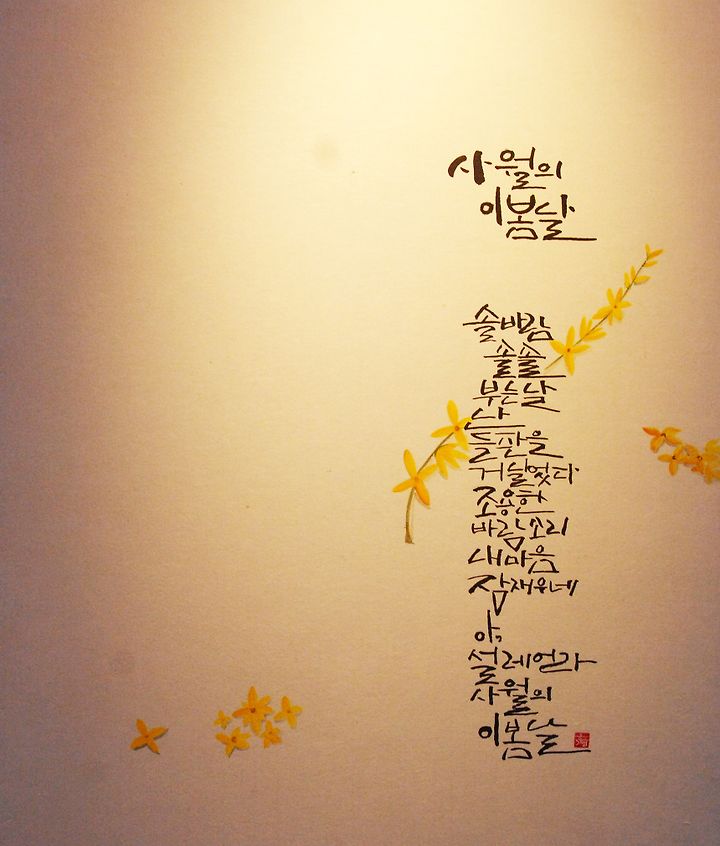 사월의
이봄날
솔바람
쏠쏠
부는날
난
들판을
거닐었다
조용한
바람소리
내마음
잠재우네
아,
설레언가
사월의
이봄날